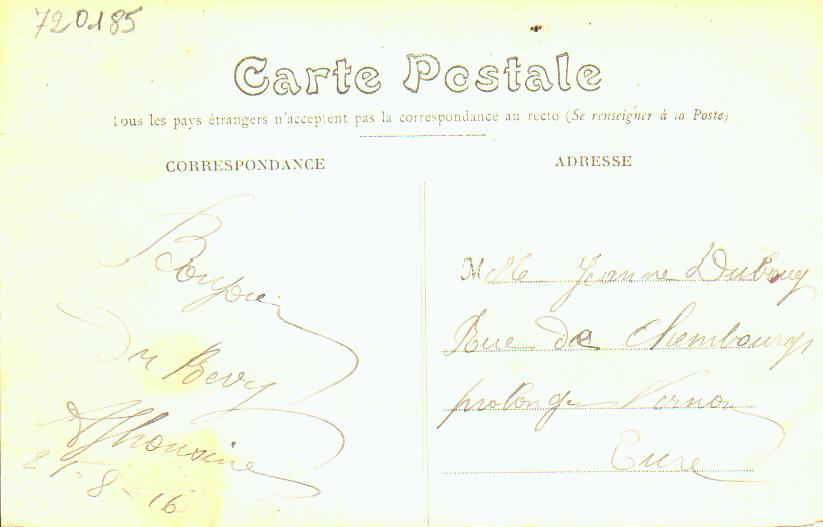 720185
Carte Postale
Tous les pays étrangers n'acceptent pas la correspondance au recto (Se renseigner à la Poste)
CORRESPONDANCE
ADRESSE
Bonjour
Du Bevy
Alphonsine
21-8-16
Mlle Jeanne Dubouy
Rue de Chembourgs
prolongée Vernon
Eure